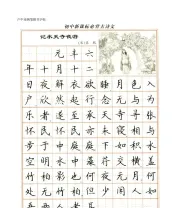 初中新课标必背古诗文
记承天寺夜游
元丰六
年十月十二
日夜解衣欲睡月色入
户欣然起行念无与为
乐者遂至承天寺寻张
怀民怀民亦未寝相与
步于中庭庭下如积水
空明水中藻荇交横盖
竹柏影也何夜无月何
处无竹柏但少闲人如